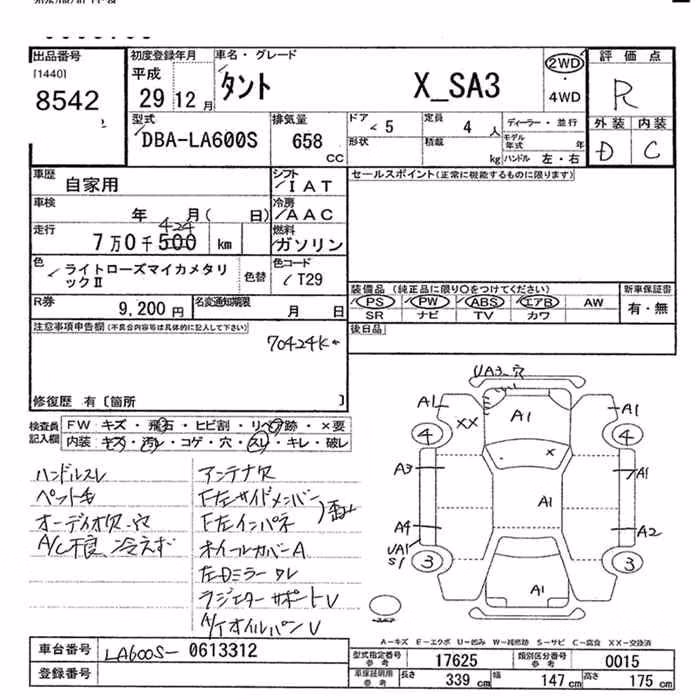 出品番号
[1440]
8542
初度登録年月
平成
29 12月
車名・グレード
タント X_SA3
2WD
・
4WD
評価点
R
外装 内装
D C
型式
DBA-LA600S
排気量
658
CC
ドア
5
形状
定員
4 人
積載
kg
ディーラー・並行
モデル年式 年
ハンドル 左・右
車歴
自家用
シフト
IAT
車検
年 月( 日)
冷房
AAC
走行
424
7万0千500 km
燃料
ガソリン
色
ライトローズマイカメタリックⅡ
色替
色コード
T29
R券
9,200円
名変通知期限
月 日
セールスポイント(正常に機能するものに限ります)
装備品 (純正品に限り〇をつけてください)
PS PW ABS エアB AW
SR ナビ TV カワ
新車保証書
有・無
後日品
注意事項申告欄(不具合内容等は具体的に記入して下さい)
70424K
修復歴 有〔箇所 〕
検査員記入欄
FW キズ・飛石・ヒビ割・リペア跡・×要
内装 キズ・汚レ・コゲ・穴・スレ・キレ・破レ
ハンドルスレ
ペット毛
オーディオ欠、穴
A/C不良 冷えず
アンテナ欠
F左サイドメンバー
F左インパネ
ホイールカバーA
左Dミラー
ラジエターサポートU
オイルパンU
UA3 穴
A1
A1
A1
XX
4
4
×
A3
A1
A1
A4
A2
UA1
S1
3
3
A1
A-キズ E-エクボ U-凹み W-補修跡 S-サビ C-腐食 XX-交換済
車台番号
LA600S- 0613312
登録番号
型式指定番号
参考
17625
類別区分番号
参考
0015
車検証明用
参考
長さ 339 cm
幅 147 cm
高さ 175 cm